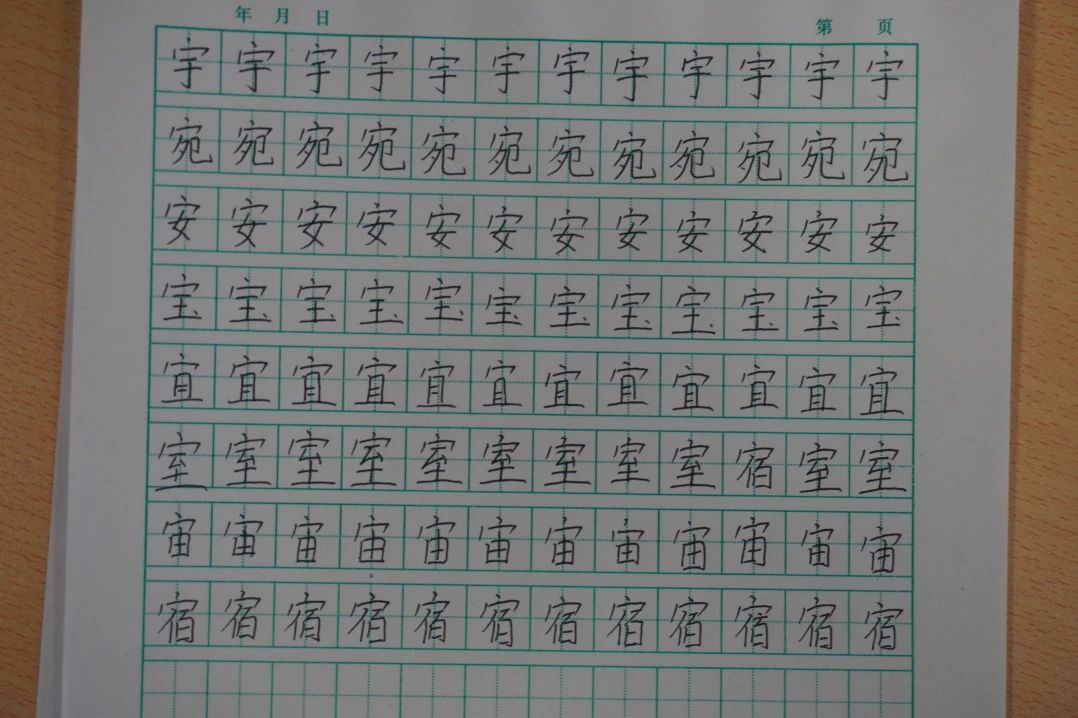 年 月 日 第 页
宇宇宇宇宇宇宇宇宇宇宇宇
宛宛宛宛宛宛宛宛宛宛宛宛
安安安安安安安安安安安安
宝宝宝宝宝宝宝宝宝宝宝宝
宜宜宜宜宜宜宜宜宜宜宜宜
室室室室室室室室室宿室室
宙宙宙宙宙宙宙宙宙宙宙宙
宿宿宿宿宿宿宿宿宿宿宿宿